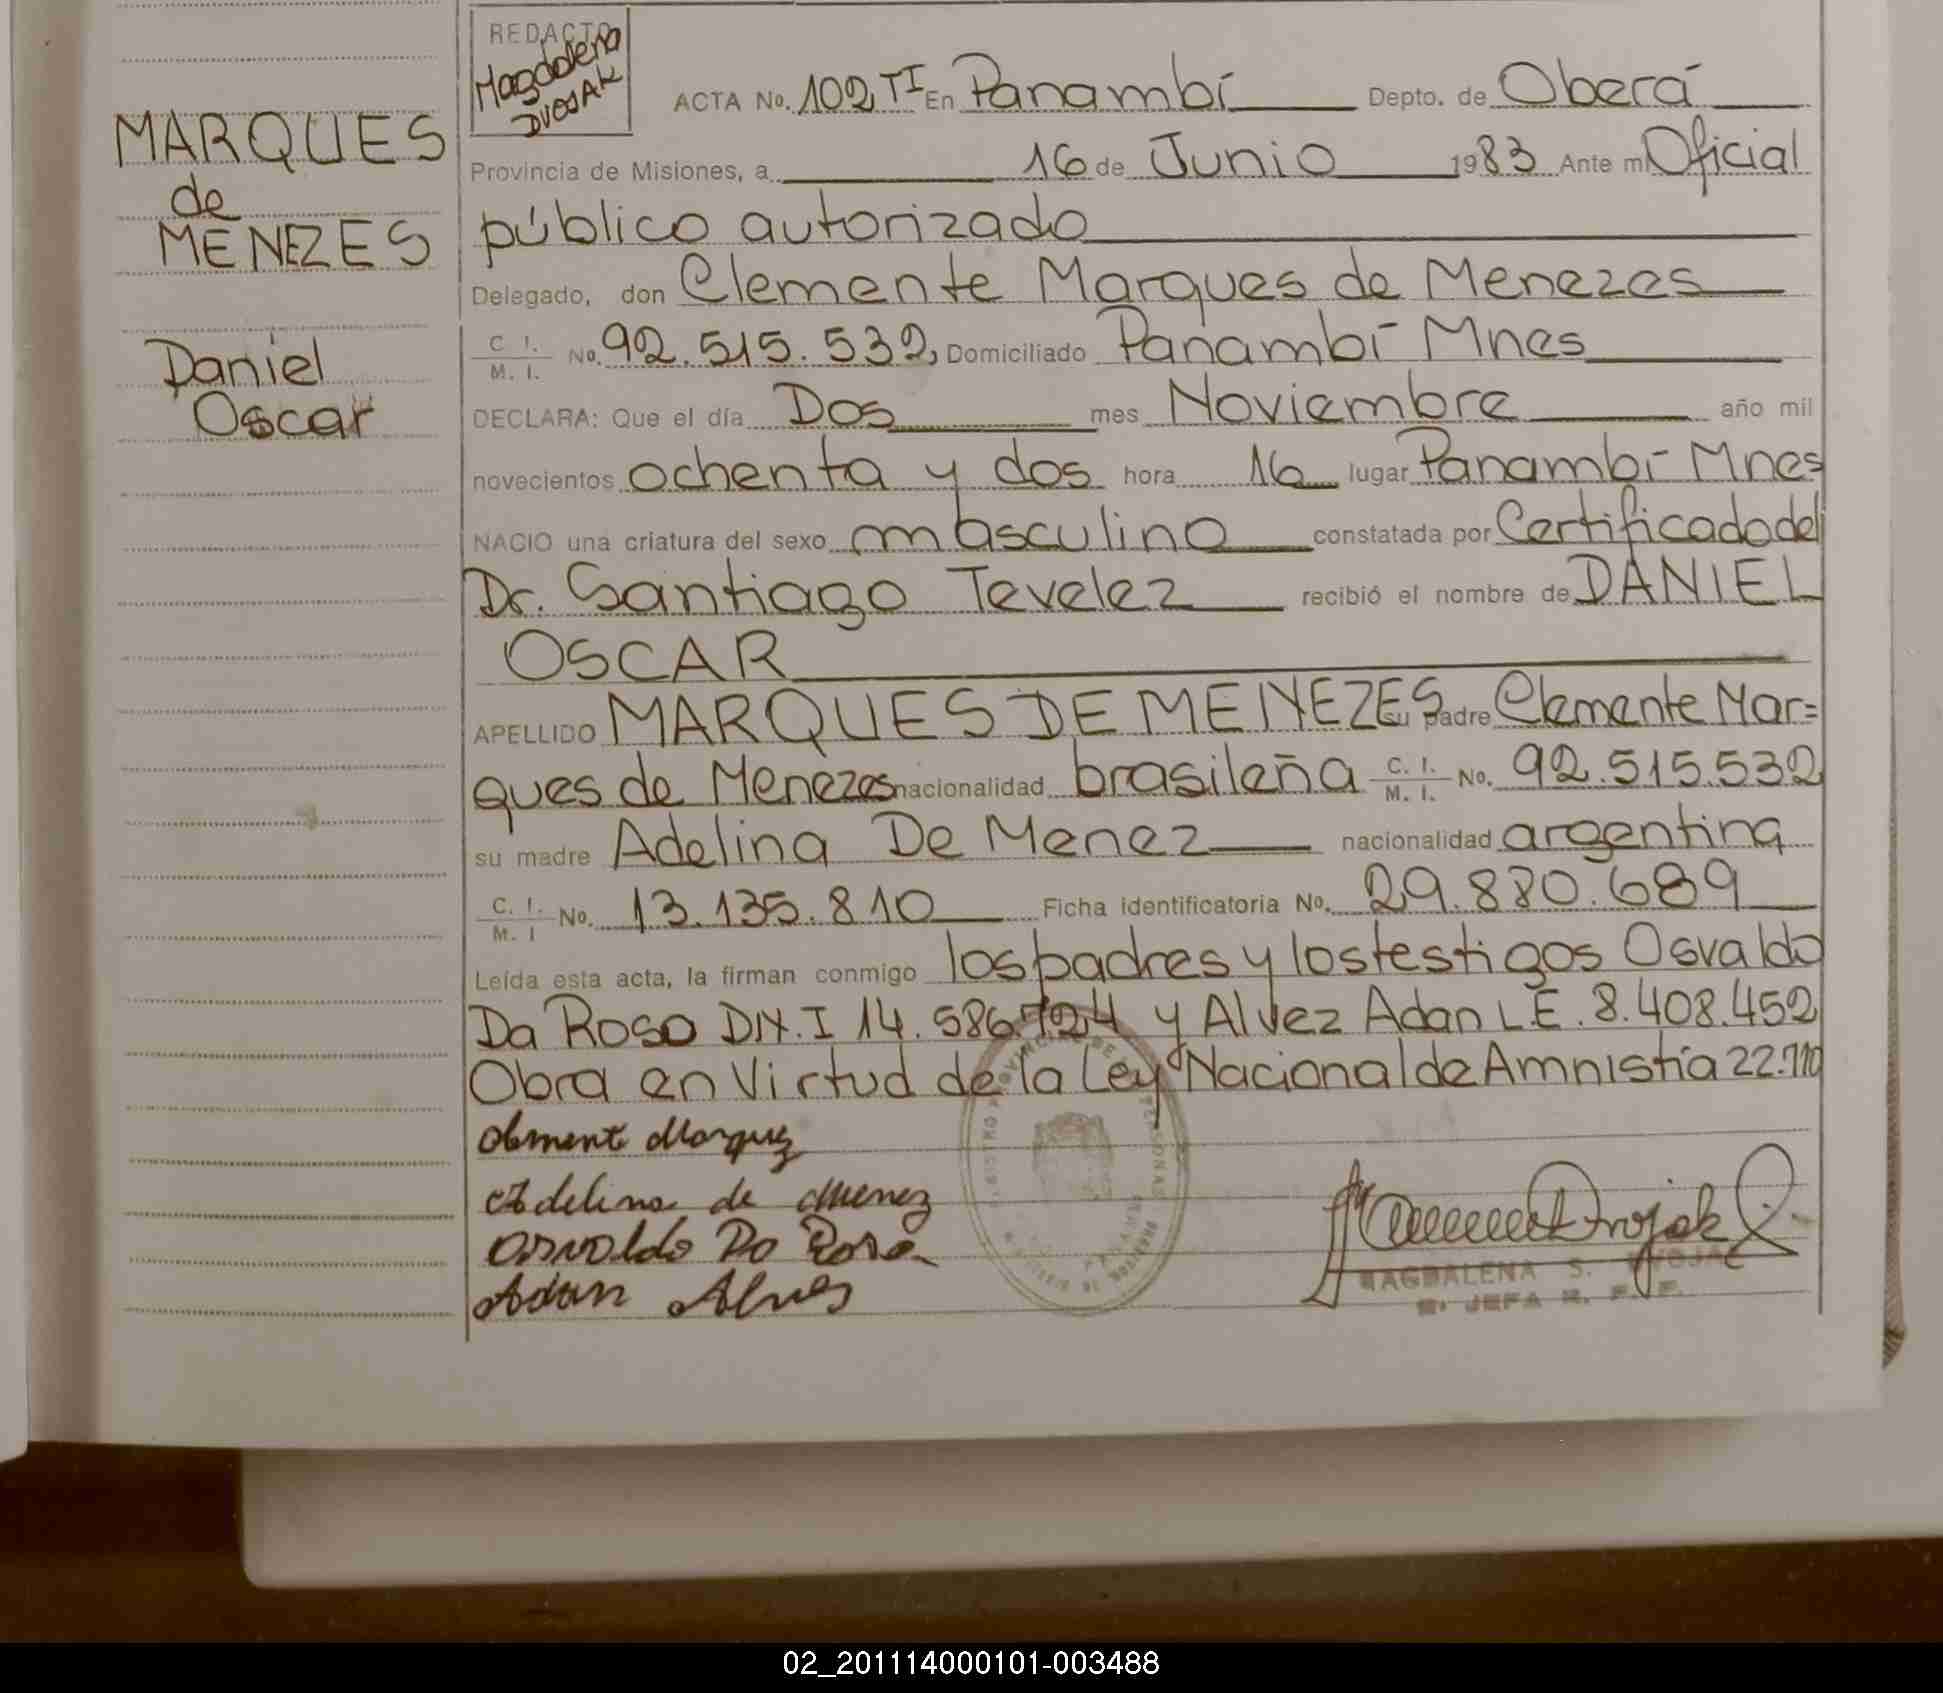 MARQUES
de
MENEZES
Daniel
Oscar
REDACTO
Magdalena
DVOJAK
ACTA No. 102 TI En Panambí Depto. de Oberá
Provincia de Misiones, a 16 de Junio 1983 Ante mi Oficial
público autorizado
Delegado, don Clemente Marques de Menezes
C. I. M. I. No. 92.515.532, Domiciliado Panambí Mnes
DECLARA: Que el día Dos mes Noviembre año mil
novecientos ochenta y dos hora 16 lugar Panambí Mnes
NACIO una criatura del sexo masculino constatada por Certificado del
Dr. Santiago Tevelez recibió el nombre de DANIEL
OSCAR
APELLIDO MARQUES DE MENEZES su padre Clemente Mar=
ques de Menezes nacionalidad brasileña C. I. M. I. No. 92.515.532
su madre Adelina De Menez nacionalidad argentina
C. I. M. I No. 13.135.810 Ficha identificatoria No. 29.880.689
Leída esta acta, la firman conmigo los padres y los testigos Osvaldo
Da Rosa DN.I 14.586.724 y Alvez Adan L.E. 8.408.452
Obra en Virtud de la Ley Nacional de Amnistía 22.770
Clemente Marquez
Adelina de Menez
Osvaldo Da Rosa
Adan Alves
MAGDALENA S. DVOJAK
JEFA R.
02_201114000101-003488